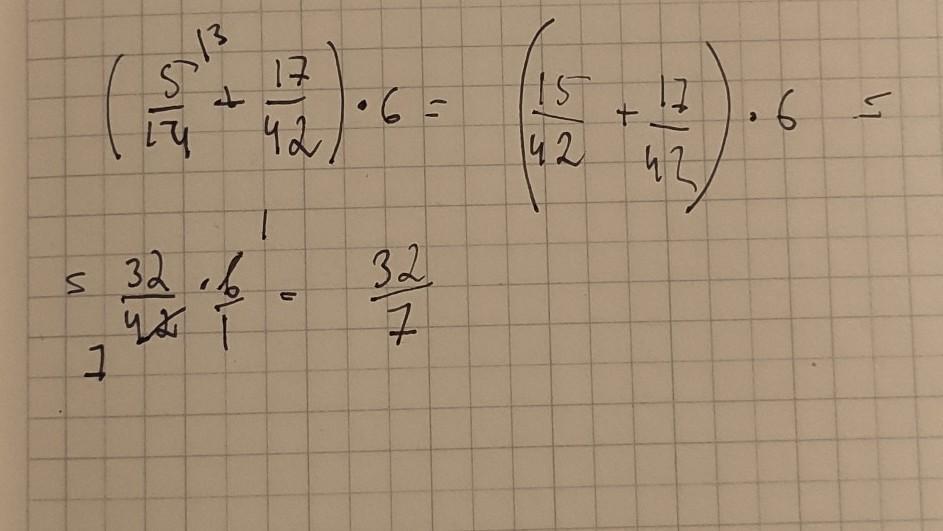 (5/14 ⁽³ + 17/42) · 6 = (15/42 + 17/42) · 6 =
= 32/42 7 · 6/1 1 = 32/7